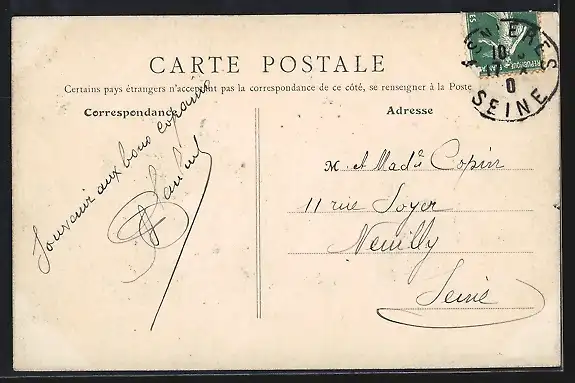 CARTE POSTALE
Certains pays étrangers n'acceptent pas la correspondance de ce côté, se renseigner à la Poste
Correspondance
Adresse
Souvenir aux bons copains
M. et Mad.e Copin
11 rue Soyer
Neuilly
Seine
SEINE